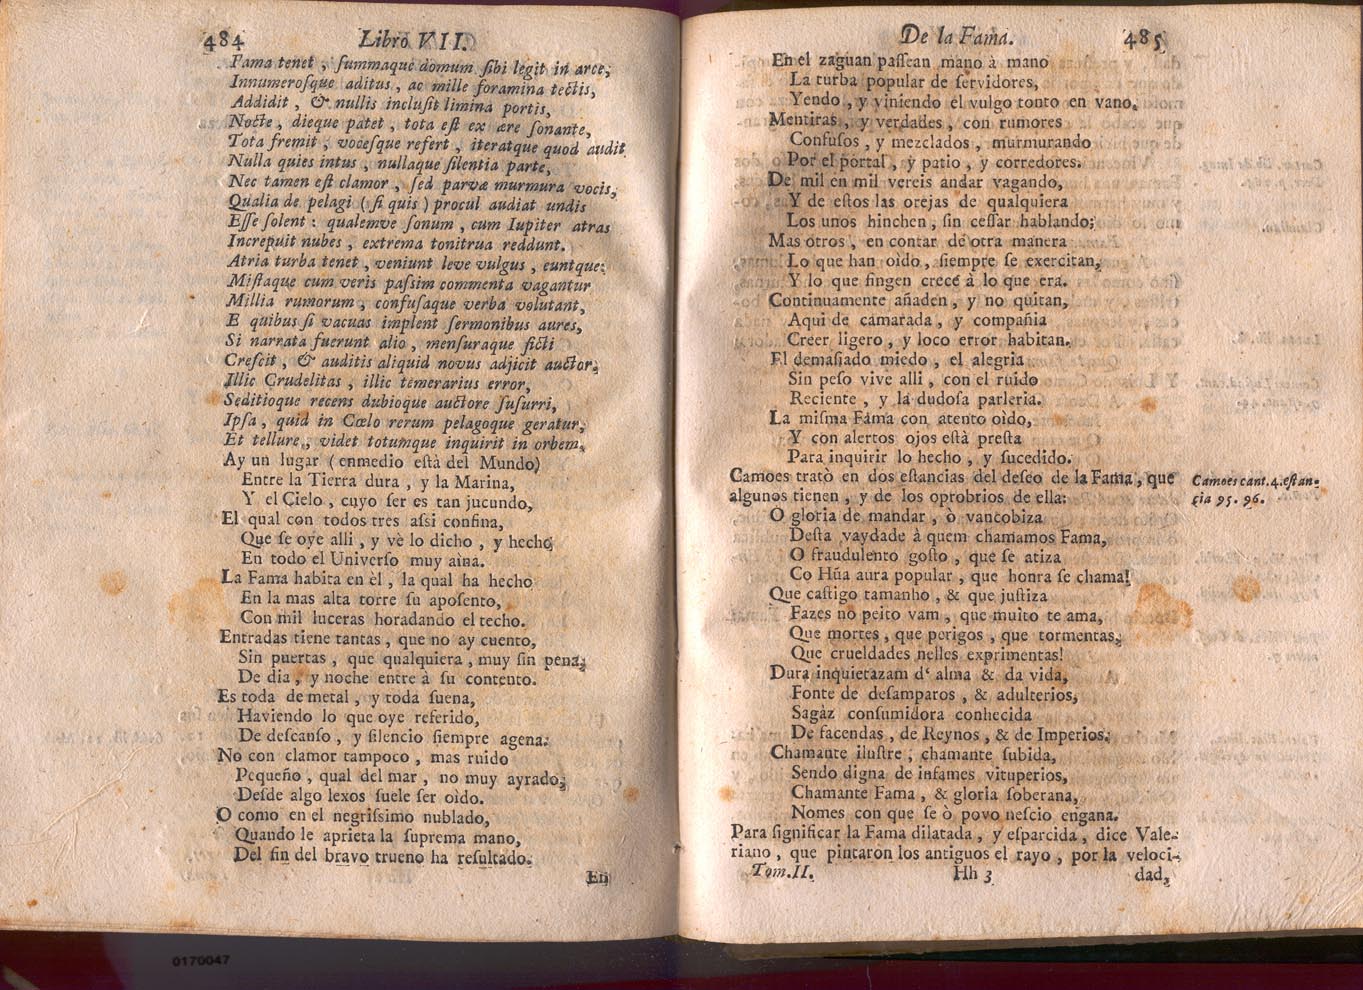 484 Libro VII.
Fama tenet, ſummaque domum ſibi legit in arce;
Innumeroſque aditus, ac mille foramina tectis,
Addidit, & nullis incluſit limina portis,
Nocte, dieque patet, tota eſt ex ære ſonante,
Tota fremit, voceſque refert, iteratque quod audit
Nulla quies intus, nullaque ſilentia parte,
Nec tamen eſt clamor, ſed parvæ murmura vocis,
Qualia de pelagi (ſi quis) procul audiat undis
Eſſe ſolent: qualemve ſonum, cum Iupiter atras
Increpuit nubes, extrema tonitrua reddunt.
Atria turba tenet, veniunt leve vulgus, euntque;
Miſtaque cum veris paſsim commenta vagantur
Millia rumorum, confuſaque verba volutant,
E quibus ſi vacuas implent ſermonibus aures,
Si narrata fuerunt alio, menſuraque ficti
Creſcit, & auditis aliquid novus adjicit auctor,
Illic Crudelitas, illic temerarius error,
Seditioque recens dubioque auctore ſuſurri,
Ipſa, quid in Cœlo rerum pelagoque geratur,
Et tellure, videt totumque inquirit in orbem,
Ay un lugar (enmedio eſtà del Mundo)
Entre la Tierra dura, y la Marina,
Y el Cielo, cuyo ſer es tan jucundo,
El qual con todos tres aſsi confina,
Que ſe oye alli, y vè lo dicho, y hecho
En todo el Univerſo muy aìna.
La Fama habita en èl, la qual ha hecho
En la mas alta torre ſu apoſento,
Con mil luceras horadando el techo.
Entradas tiene tantas, que no ay cuento,
Sin puertas, que qualquiera, muy ſin pena,
De dia, y noche entre à ſu contento.
Es toda de metal, y toda ſuena,
Haviendo lo que oye referido,
De deſcanſo, y ſilencio ſiempre agena.
No con clamor tampoco, mas ruido
Pequeño, qual del mar, no muy ayrado,
Deſde algo lexos ſuele ſer oìdo.
O como en el negriſsimo nublado,
Quando le aprieta la ſuprema mano,
Del fin del bravo trueno ha reſultado.
En
De la Fama. 485
En el zaguan paſſean mano à mano
La turba popular de ſervidores,
Yendo, y viniendo èl vulgo tonto en vano.
Mentiras, y verdades, con rumores
Confuſos, y mezclados, murmurando
Por el portal, y patio, y corredores.
De mil en mil vereis andar vagando,
Y de eſtos las orejas de qualquiera
Los unos hinchen, ſin ceſſar hablando;
Mas otros, en contar de otra manera
Lo que han oìdo, ſiempre ſe exercitan,
Y lo que fingen crece à lo que era.
Continuamente añaden, y no quitan,
Aqui de camarada, y compañia
Creer ligero, y loco error habitan.
El demaſiado miedo, el alegria
Sin peſo vive alli, con el ruido
Reciente, y la dudoſa parleria.
La miſma Fama con atento oìdo,
Y con alertos ojos eſtà preſta
Para inquirir lo hecho, y ſucedido.
Camoes tratò en dos eſtancias del deſeo de la Fama, que
algunos tienen, y de los oprobrios de ella:
Camoes cant. 4. eſtan-
cia 95. 96.
O gloria de mandar, ò vancobiza
Deſta vaydade à quem chamamos Fama,
O fraudulento goſto, que ſe atiza
Co Hũa aura popular, que honra ſe chama!
Que caſtigo tamanho, & que juſtiza
Fazes no peito vam, que muito te ama,
Que mortes, que perigos, que tormentas,
Que crueldades nelles exprimentas!
Dura inquietazam d' alma & da vida,
Fonte de deſamparos, & adulterios,
Sagàz conſumidora conhecida
De facendas, de Reynos, & de Imperios;
Chamante iluſtre, chamante ſubida,
Sendo digna de infames vituperios,
Chamante Fama, & gloria ſoberana,
Nomes con que ſe ò povo neſcio engana.
Para ſignificar la Fama dilatada, y eſparcida, dice Vale-
riano, que pintaron los antiguos el rayo, por la veloci-
Tom. II. Hh 3 dad,
0170047